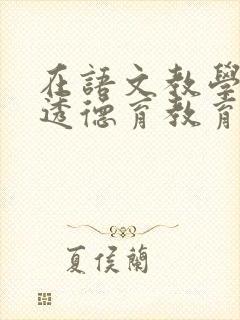 在語文教學
透德育教育
夏侯蘭